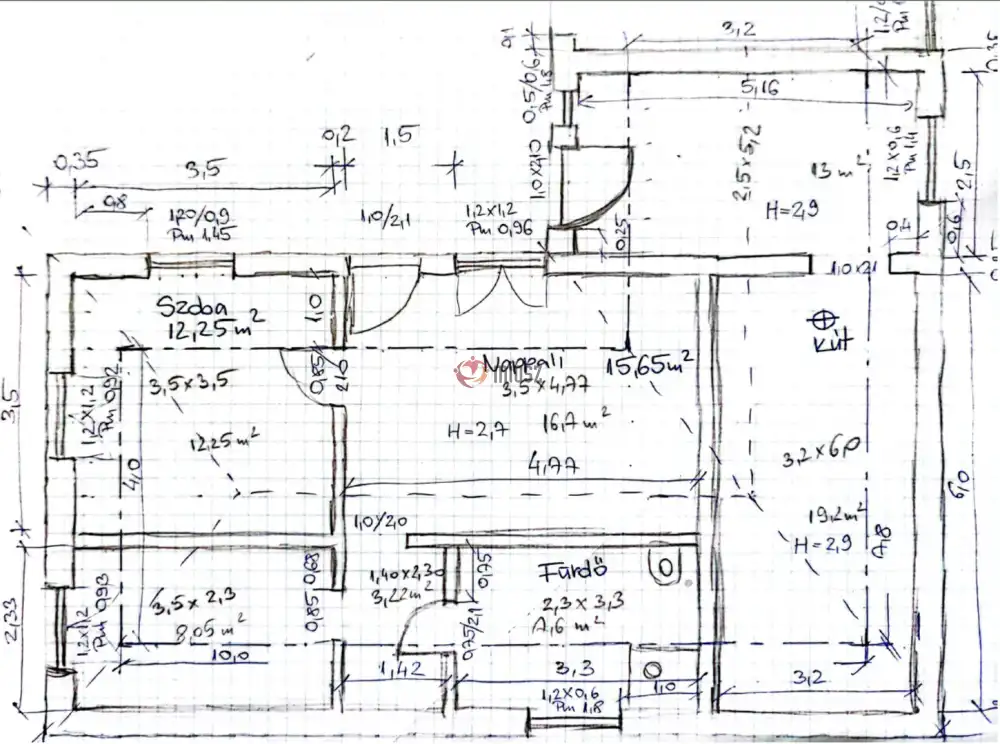 3,2
5,16
0,5/0,6
Pm 1,8
1,0x2,10
2,5x5,2
13 m²
H=2,9
1,2x0,6
Pm 1,4
2,5
0,4
0,6
0,25
1,0x2,1
0,2
1,5
0,35
3,5
0,8
1,20/0,9
Pm 1,45
1,0/2,1
1,2x1,2
Pm 0,96
Szoba
12,25 m²
1,0
0,85
2,10
3,5x3,5
12,25 m²
1,2x1,2
Pm 0,92
3,5
4,0
Nappali
15,65 m²
3,5x4,77
16,7 m²
H=2,7
4,77
Kút
3,2x6,0
19,2 m²
H=2,9
6,0
1,0/2,0
1,40x2,30
3,22 m²
0,75
0,68
0,85
0,75/2,1
Fürdő
2,3x3,3
3,5x2,3
8,05 m²
1,2x1,2
Pm 0,93
2,33
10,0
1,42
3,3
1,2x0,6
Pm 1,8
1,0
3,2